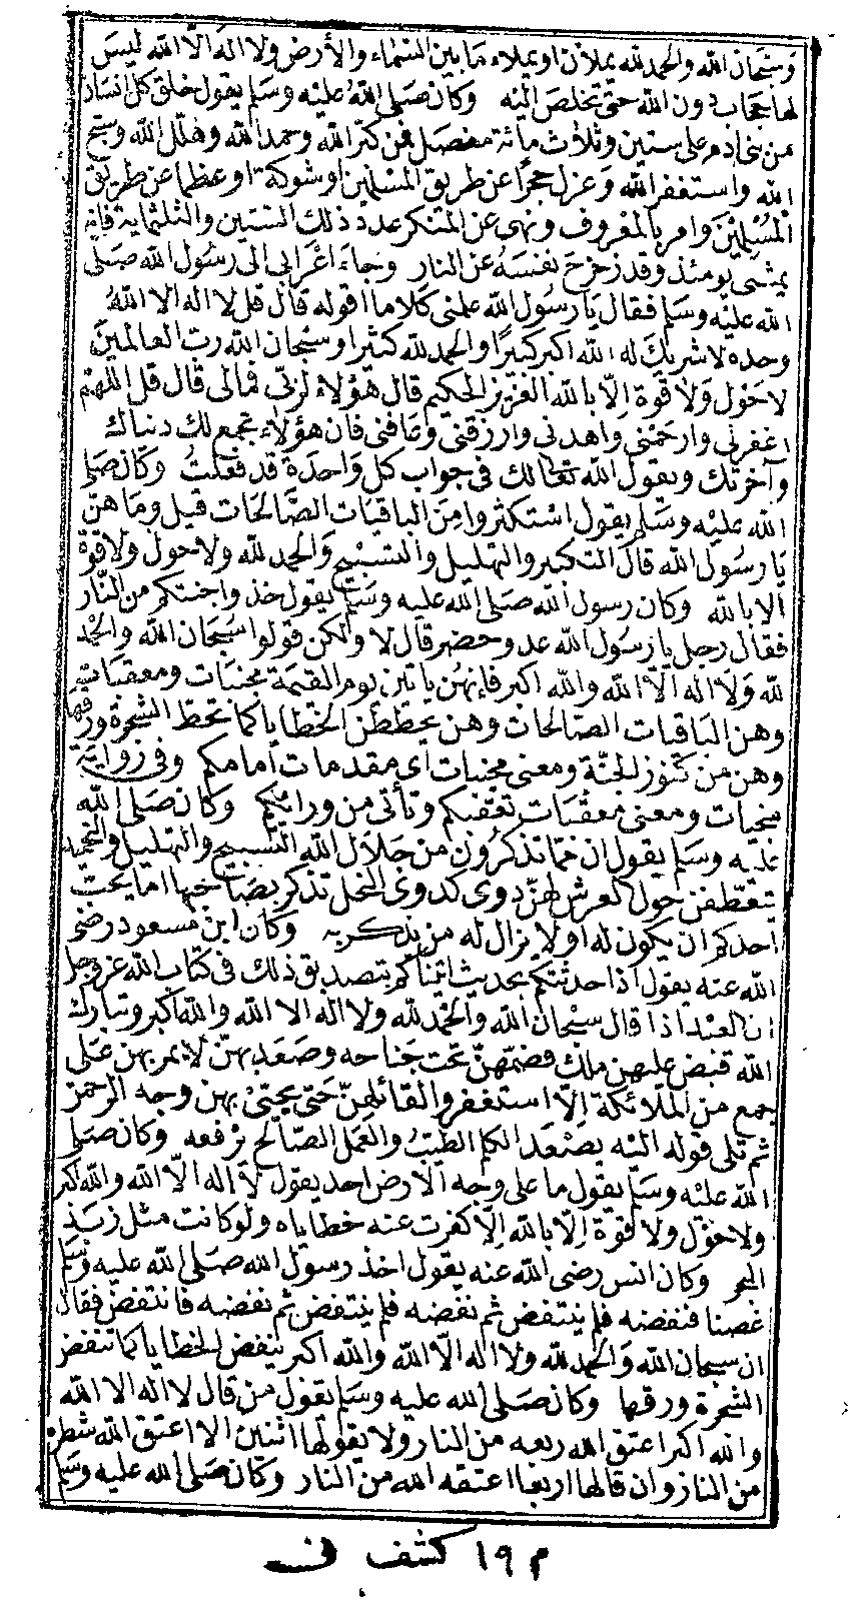 وسبحان الله والحمد لله يملآن او يملاء ما بين السماء والأرض ولا اله الا الله ليس
لها حجاب دون الله حتى تخلص اليه وكان صلى الله عليه وسلم يقول خلق كل انسان
من بنى ادم على ستين وثلاث مائة مفصل فمن كبر الله وحمد الله وهلل الله وسبح
الله واستغفر الله وعزل حجرا عن طريق المسلمين او شوكة او عظما عن طريق
المسلمين وامر بالمعروف ونهى عن المنكر عدد ذلك الستين والثلثماية فانه
يمشى يومئذ وقد زحزح نفسه عن النار وجاء اعرابى الى رسول الله صلى
الله عليه وسلم فقال يا رسول الله علمنى كلاما اقوله قال قل لا اله الا الله
وحده لا شريك له الله اكبر كبيرا والحمد لله كثيرا وسبحان الله رب العالمين
لا حول ولا قوة الا بالله العزيز الحكيم قال هؤلاء لربى فمالى قال قل اللهم
اغفرلى وارحمنى واهدنى وارزقنى وعافنى فان هؤلاء تجمع لك دنياك
وآخرتك ويقول الله تعالى لك فى جواب كل واحدة قد فعلت وكان صلى
الله عليه وسلم يقول استكثروا من الباقيات الصالحات قيل وما هن
يا رسول الله قال التكبير والتهليل والتسبيح والحمد لله ولا حول ولا قوة
الا بالله وكان رسول الله صلى الله عليه وسلم يقول خذوا جنتكم من النار
فقال رجل يا رسول الله عدو حضر قال لا ولكن قولوا سبحان الله والحمد
لله ولا اله الا الله والله اكبر فانهن ياتين يوم القيمة مجنبات ومعقبات
وهن الباقيات الصالحات وهن يحططن الخطايا كما تحط الشجرة ورقها
وهن من كنوز الجنة ومعنى مجنبات اى مقدمات امامكم وفى رواية
منجيات ومعنى معقبات تعقبكم وتأتى من ورائكم وكان صلى الله
عليه وسلم يقول ان مما تذكرون من جلال الله التسبيح والتهليل والتحميد
تتعطفن حول العرش لهن دوى كدوى النحل تذكر بصاحبها اما يحب
احدكم ان يكون له او لا يزال له من يذكر به وكان ابن مسعود رضى
الله عنه يقول اذا حدثتكم بحديث اتيناكم بتصديق ذلك فى كتاب الله عز وجل
ان العبد اذا قال سبحان الله والحمد لله ولا اله الا الله والله اكبر وتبارك
الله قبض عليهن ملك فضمهن تحت جناحه وصعد بهن لا يمر بهن على
جمع من الملائكة الا استغفروا لقائلهن حتى يجئ بهن وجه الرحمن
ثم تلى قوله اليه يصعد الكلم الطيب والعمل الصالح يرفعه وكان صلى
الله عليه وسلم يقول ما على وجه الارض احد يقول لا اله الا الله والله اكبر
ولا حول ولا قوة الا بالله الا كفرت عنه خطاياه ولو كانت مثل زبد
البحر وكان انس رضى الله عنه يقول اخذ رسول الله صلى الله عليه وسلم
غصنا فنفضه فلم ينتفض ثم نفضه فلم ينتفض ثم نفضه فانتفض فقال
ان سبحان الله والحمد لله ولا اله الا الله والله اكبر ينفض الخطايا كما تنفض
الشجرة ورقها وكان صلى الله عليه وسلم يقول من قال لا اله الا الله
والله اكبر اعتق الله ربعه من النار ولا يقولها اثنين الا اعتق الله شطره
من النار وان قالها اربعا اعتقه الله من النار وكان صلى الله عليه وسلم
م ١٩ كشف نى